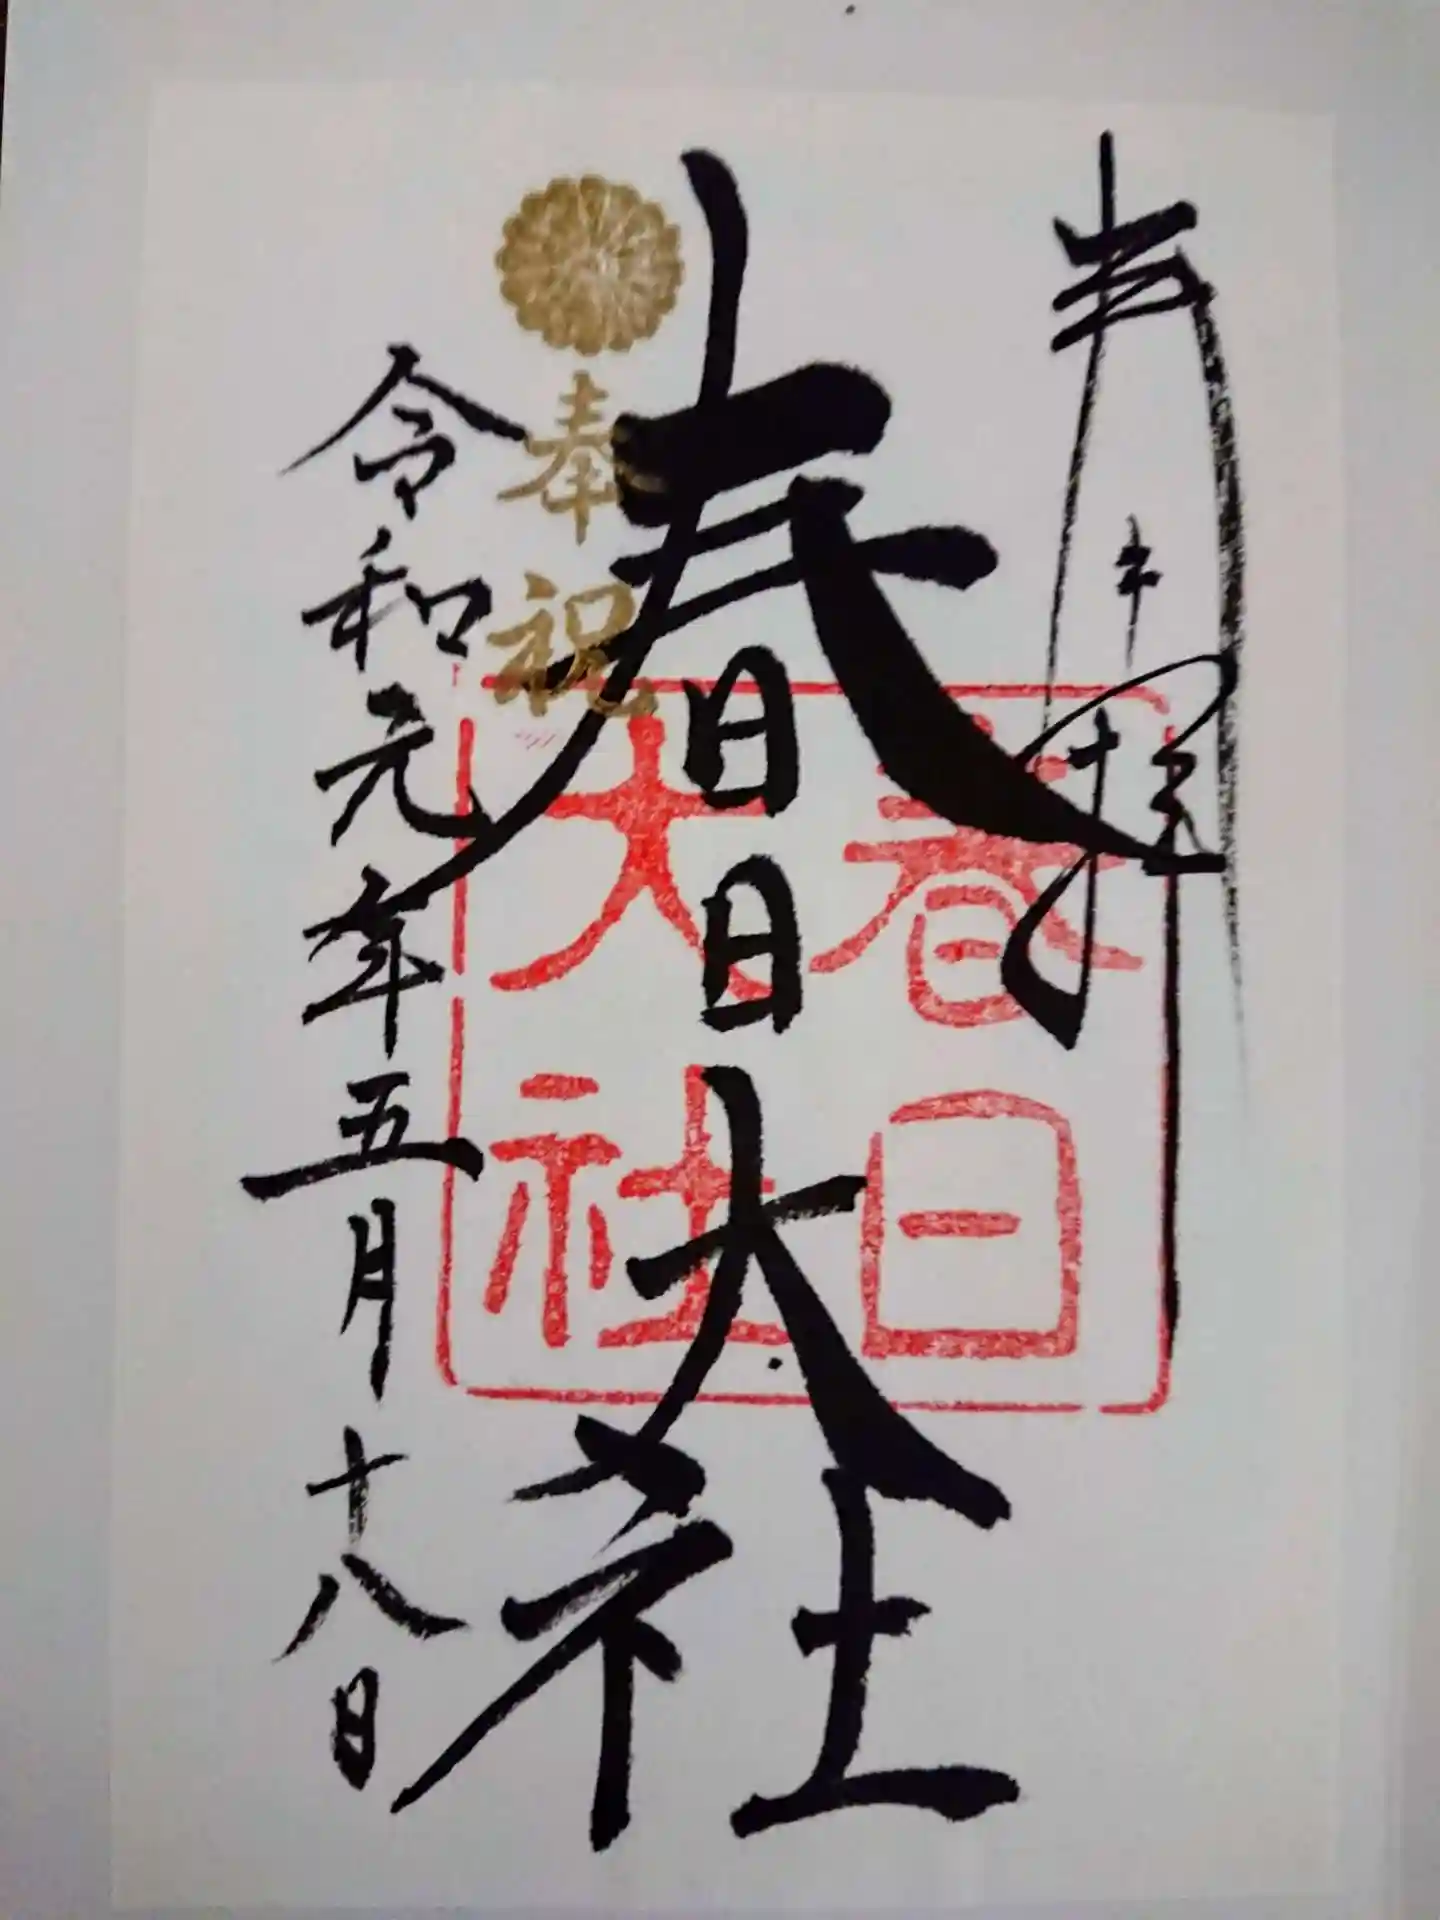 奉拝
春日大社
春日
大社
奉祝
令和元年五月十八日